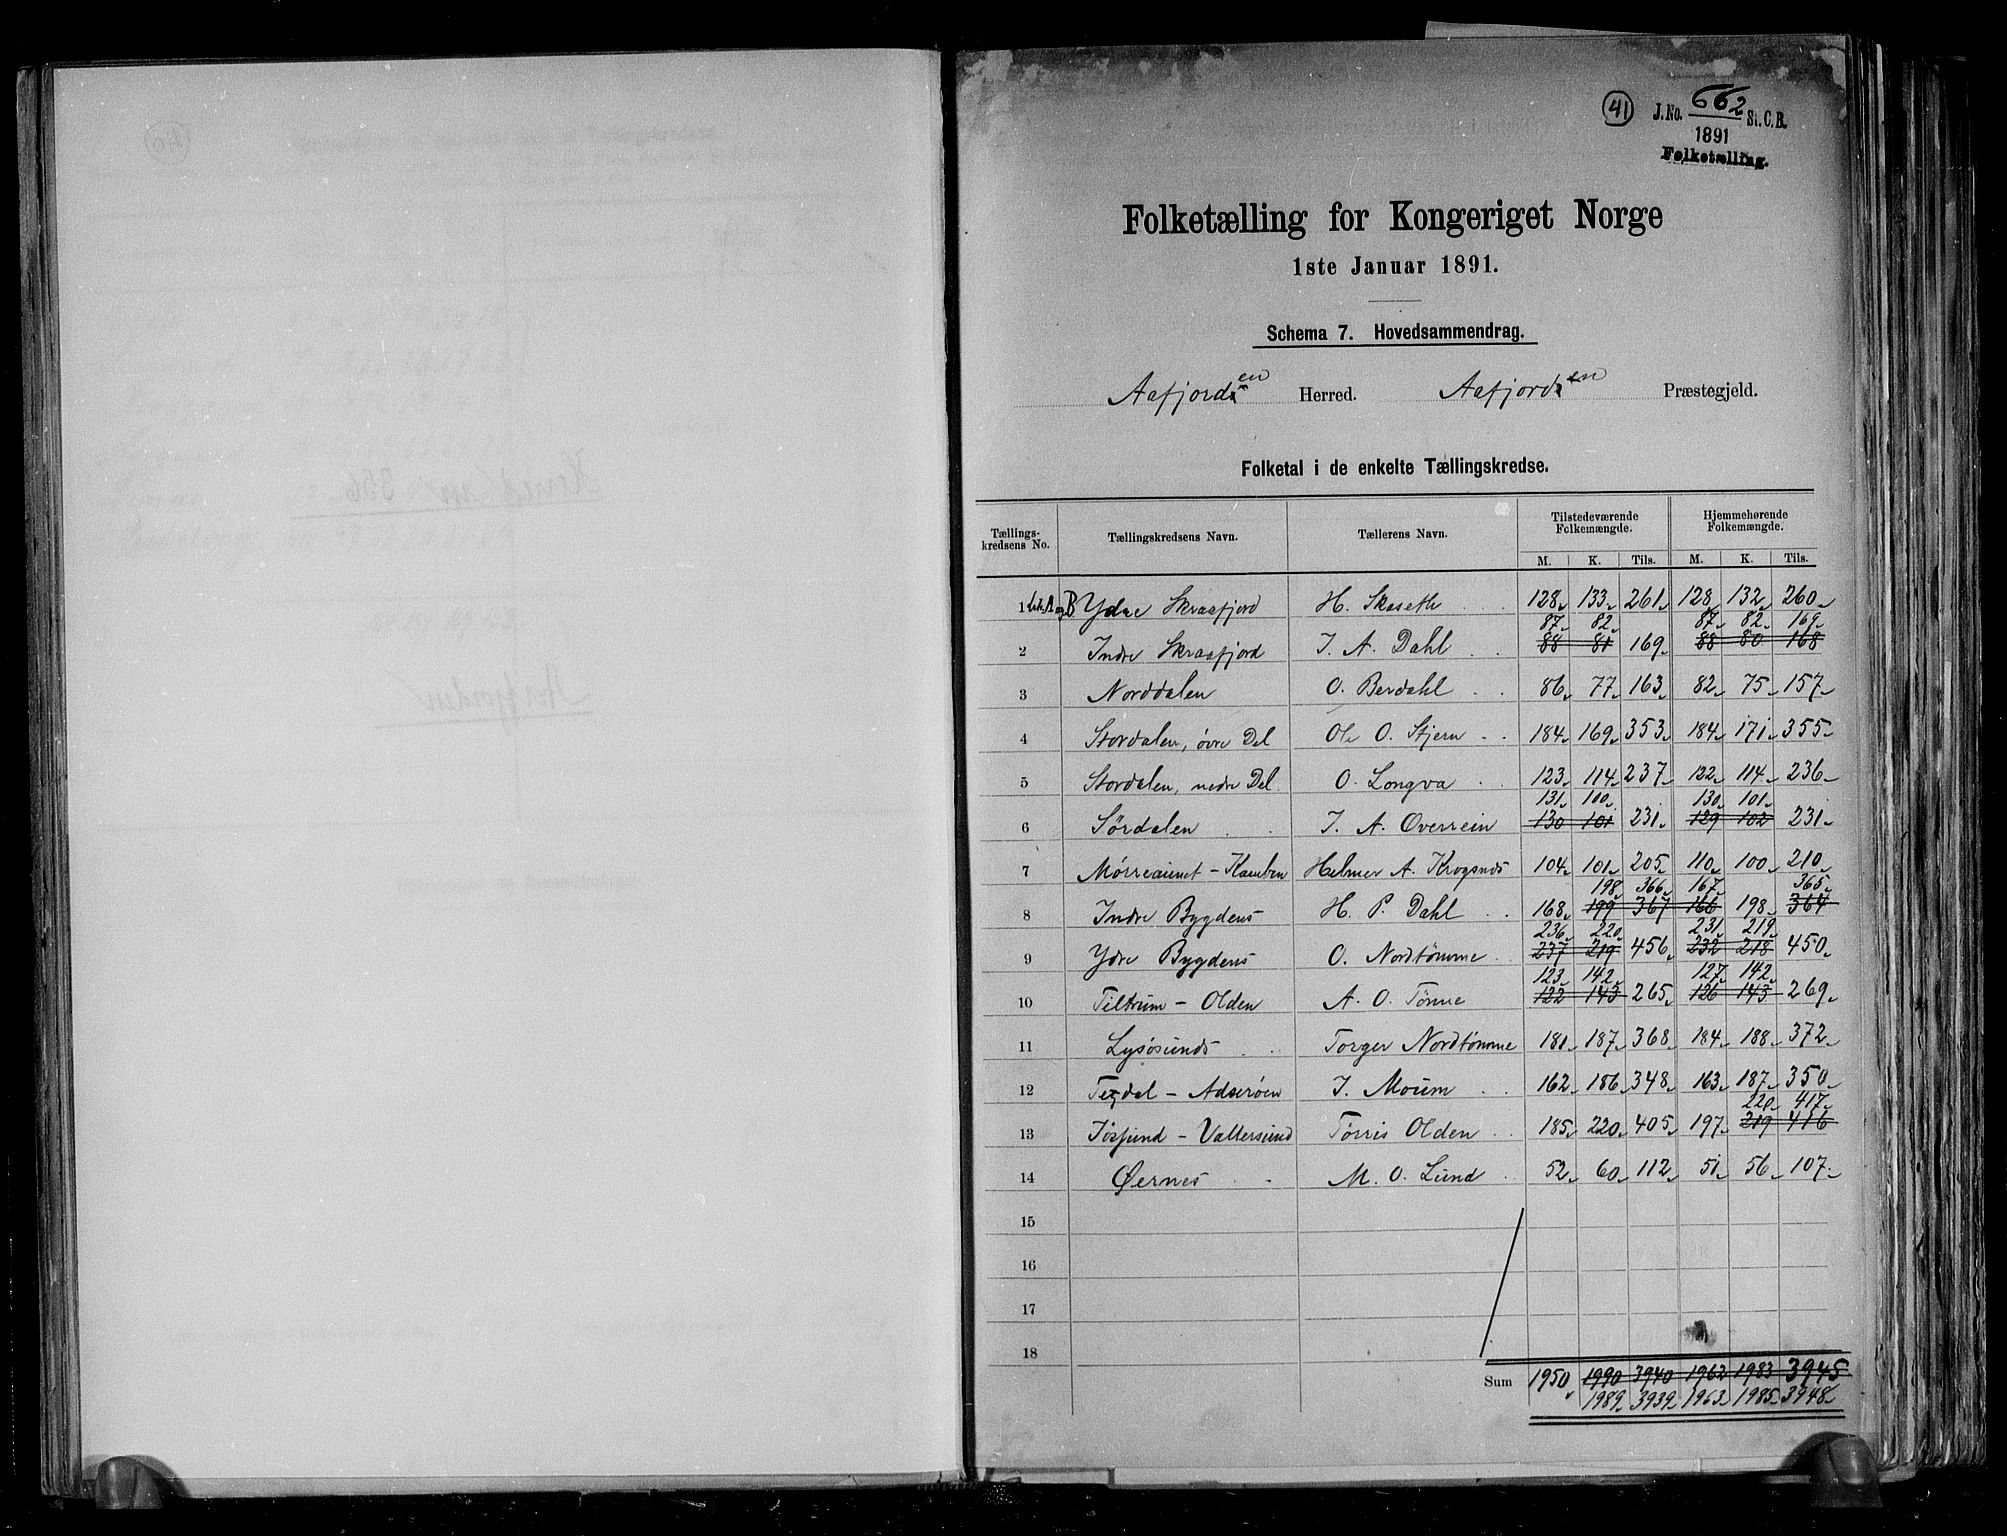 41 J. No. 662 St. C. B.
1891
Folketælling.
Folketælling for Kongeriget Norge
1ste Januar 1891.
Schema 7. Hovedsammendrag.
Aafjorden Herred. Aafjorden Præstegjeld.
Folketal i de enkelte Tællingskredse.
Tællings-kredsens No. Tællingskredsens Navn. Tællerens Navn. Tilstedeværende Folkemængde. Hjemmehørende Folkemængde.
M. K. Tils. M. K. Tils.
1 Litr. A og B Ydre Skraafjord H. Skaseth 128 133 261 128 132 260
87 82 87 82 169
2 Indre Skraafjord J. A. Dahl 88 81 169 88 80 168
3 Norddalen O. Berdahl 86 77 163 82 75 157
4 Stordalen, øvre Del Ole O. Stjern 184 169 353 184 171 355
5 Stordalen, nedre Del O. Longva 123 114 237 122 114 236
131 100 130 101
6 Sørdalen J. A. Overrein 130 101 231 129 102 231
7 Mørreaunet - Kamben Helmer A. Krogsnes 104 101 205 110 100 210
198 366 167 365
8 Indre Bygdens H. P. Dahl 168 199 367 166 198 364
236 220 231 219
9 Ydre Bygdens O. Nordtømme 237 219 456 232 218 450
123 142 127 142
10 Teltrum - Olden A. O. Tønne 122 143 265 126 143 269
11 Lysøsunds Torger Nordtømme 181 187 368 184 188 372
12 Teqdal - Adserøen J. Moum 162 186 348 163 187 350
220 417
13 Jøssund - Valtersund Tørris Olden 185 220 405 197 219 416
14 Øernes M. O. Lund 52 60 112 51 56 107
15
16
17
18
Sum 1950 1990 3940 1962 1983 3945
1989 3939 1963 1985 3948